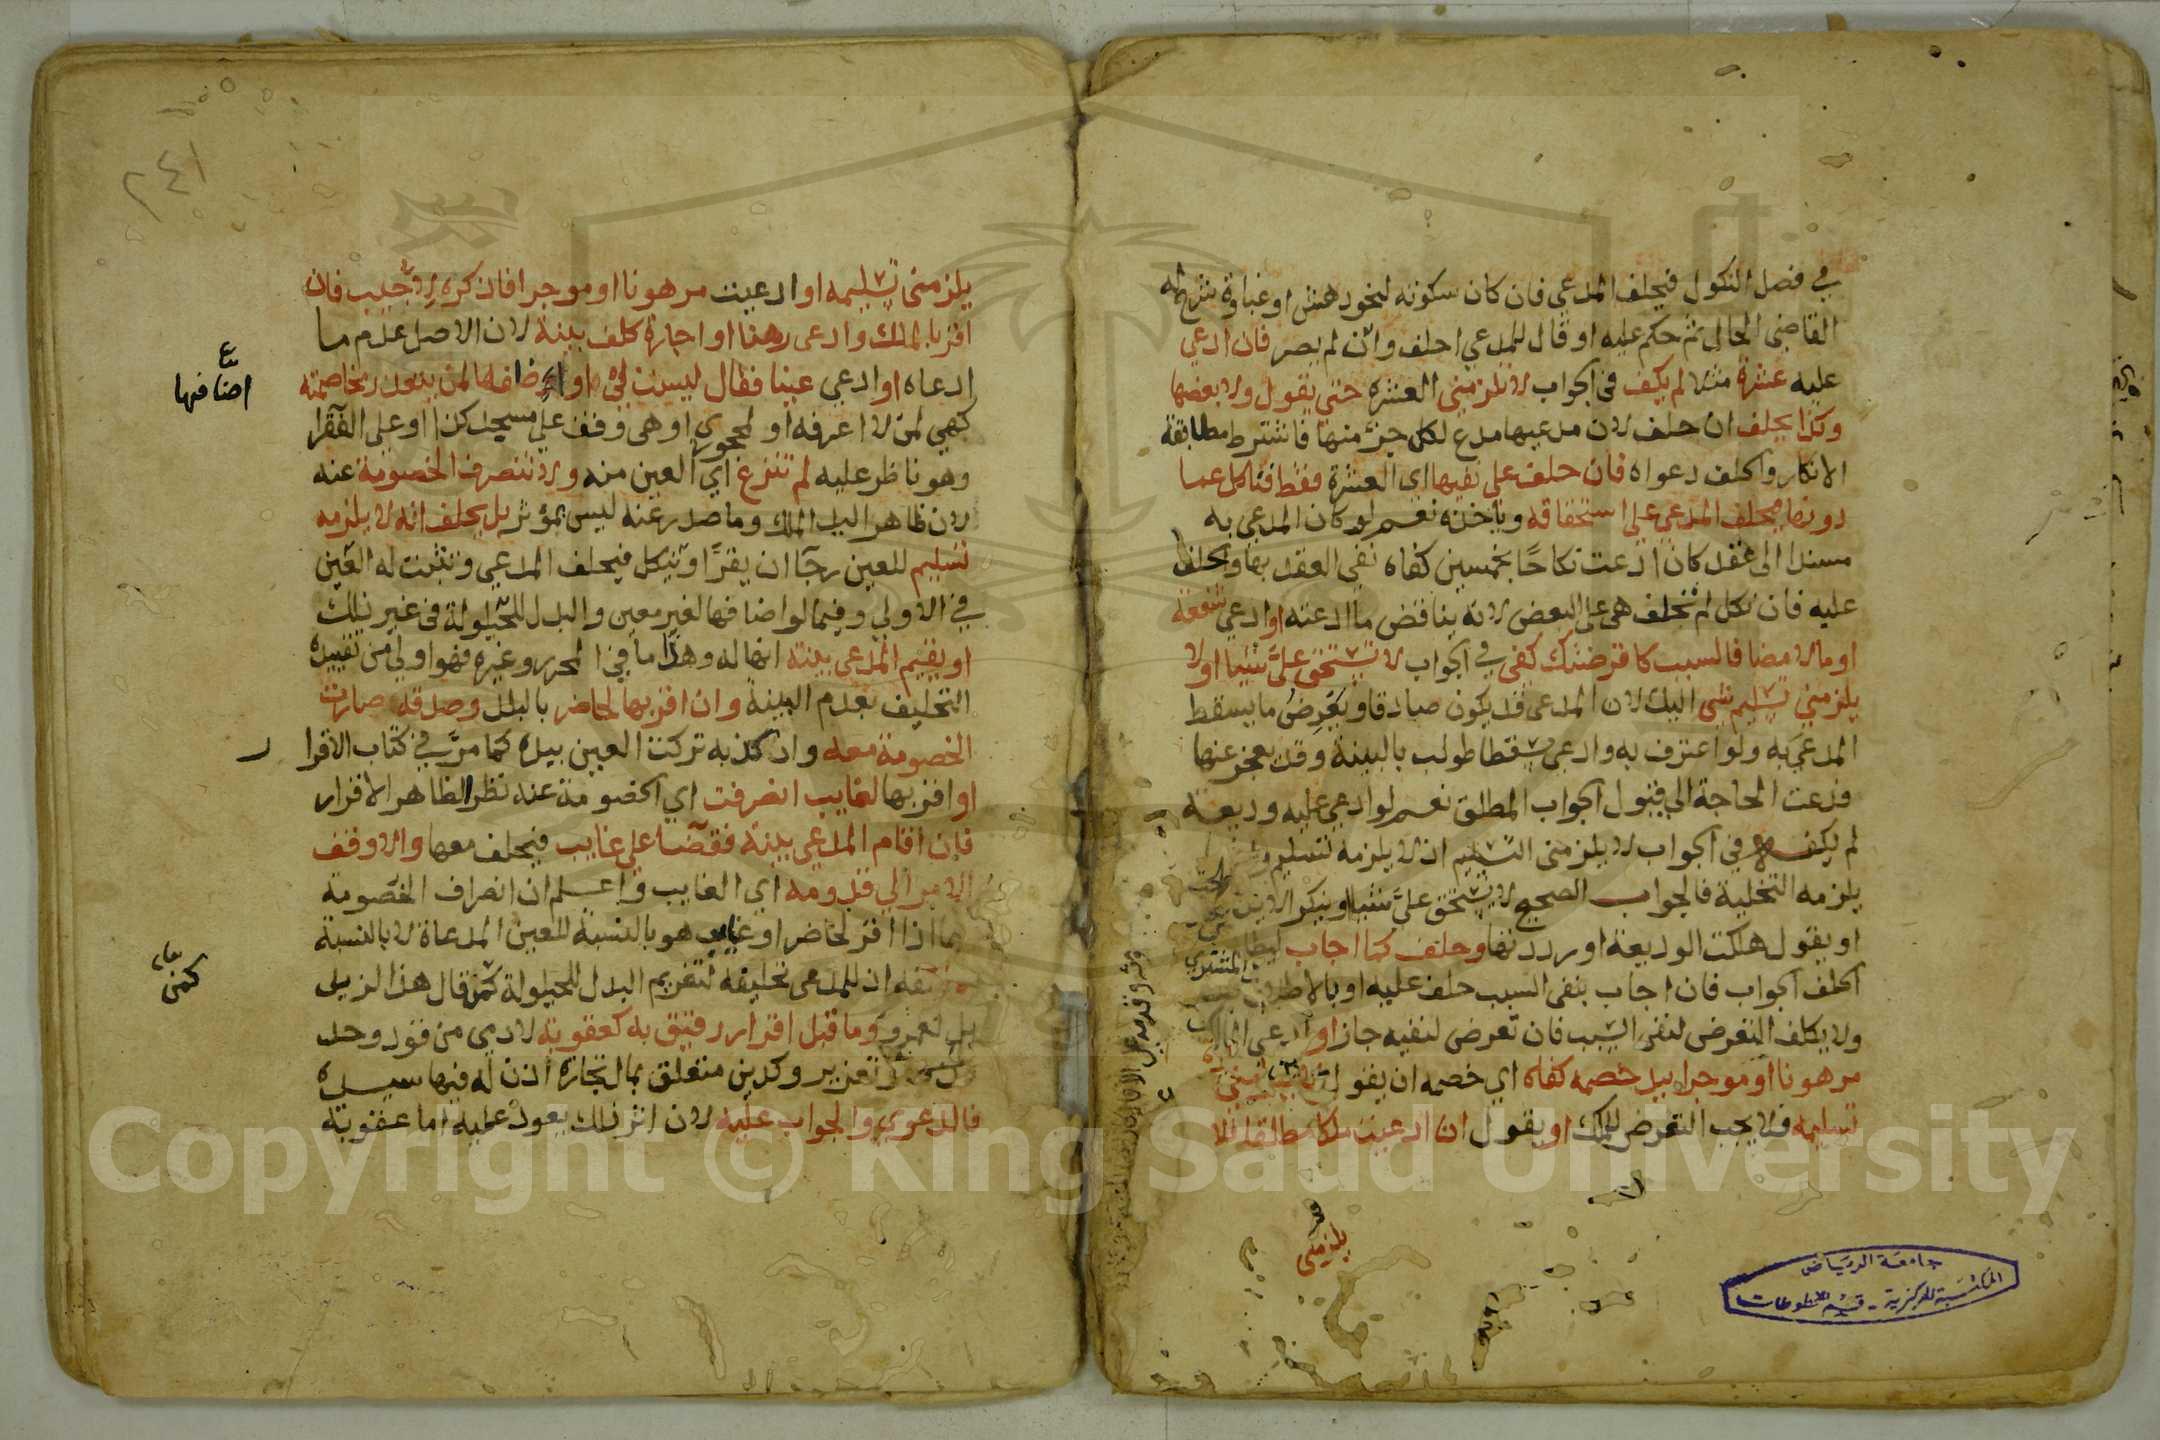 في فصل النكول فيحلف المدعي فان كان سكوته لنحو دهش او غباوة شرح له
القاضي الحال ثم حكم عليه او قال للمدعي احلف وان لم يصر فان ادعي
عليه عشرة مثلا لم يكف في الجواب لا تلزمني العشرة حتي يقول ولا بعضها
وكذا يحلف ان حلف لان مدعيها مدع لكل جزء منها فاشترط مطابقة
الانكار والحلف دعواه فان حلف علي نفيها اي العشرة فقط فناكل عما
دونها فيحلف المدعي علي استحقاقه وياخذه نعم لو كان المدعي به
مسندا الى عقد كان ادعت نكاحا بخمسين كفاه نفي العقد بها ويحلف
عليه فان نكل لم تحلف هي علي البعض لانه يناقض ما ادعته او ادعي شفعة
او مالا مضافا لسبب كاقرضتك كفي في الجواب لا تستحق عليَّ شيئا او لا
يلزمني تسليم شي اليك لان المدعي قد يكون صادقا ويعرض ما يسقط
المدعي به ولو اعترف به وادعي مسقطا طولب بالبينة وقد يعجز عنها
فدعت الحاجة الي قبول الجواب المطلق نعم لو ادعي عليه وديعة
لم يكف في الجواب لا يلزمني التسليم اذ لا يلزمه تسليم
يلزمه التخلية فالجواب الصحيح لا تستحق عليَّ شيئا او ينكر الايداع
او يقول هلكت الوديعة او رددتها وحلف كما اجاب ليطابق
الحلف الجواب فان اجاب بنفي السبب حلف عليه او بالاطلاق
ولا يكلف التعرض لنفي السبب فان تعرض لنفيه جاز او ادعي المالك
مرهونا او موجرا بيد خصمه كفاه اي خصمه ان يقول لا يلزمني
تسليمه فلا يجب التعرض للملك او يقول ان ادعيت ملكا مطلقا فلا
يلزمني
جامعة الرياض
المكتبة المركزية - قسم المخطوطات
٢٤١
يلزمني تسليمه او ادعيت مرهونا او موجرا فاذكره لاجيب فان
اقر بالملك وادعى رهنا او اجارة كلف بينة لان الاصل عدم ما
ادعاه او ادعي عينا فقال ليست لي او اضافها لمن يتعذر مخاصمته
كهي لمن لا اعرفه او لمحجوري او هي وقف علي مسجد كذا او علي الفقرا
وهو ناظر عليه لم تنزع اي العين منه ولا تنصرف الخصومة عنه
لان ظاهر اليد الملك وما صدر عنه ليس بمؤثر بل يحلف انه لا يلزمه
تسليم للعين رجا ان يقر او ينكل فيحلف المدعي وتثبت له العين
في الاولي وفيما لو اضافها لغير معين والبدل للحيلولة في غير ذلك
او يقيم المدعي بينة انها له وهذا ما في المحرر وغيره فهو اولي من تقييده
التحليف بعدم البينة وان اقر بها لحاضر بالبلد وصدقه صارت
الخصومة معه وان كذبه تركت العين بيده كما مرَّ في كتاب الاقرا
ر
او اقر بها لغايب انصرفت اي الخصومة عنه نظرا لظاهر الاقرار
فان اقام المدعي بينة فقضا علي غايب فيحلف معها والا وقف
الامر الي قدومه اي الغايب واعلم ان انصراف الخصومة
اذا اقر لحاضر او غايب هو بالنسبة للعين المدعاة لا بالنسبة
اذ للمدعي تحليفه لتغريم البدل للحيلولة كمن قال هذا لزيد
بل لعمرو وما قبل اقرار رقيق به كعقوبة لادمي من قود وحد
وتعزير وكدين متعلق بمال تجارة اذن له فيها سيده
فالدعوي والجواب عليه لان اثر ذلك يعود عليه اما عقوبة
اضافها
كمن
Copyright © King Saud University